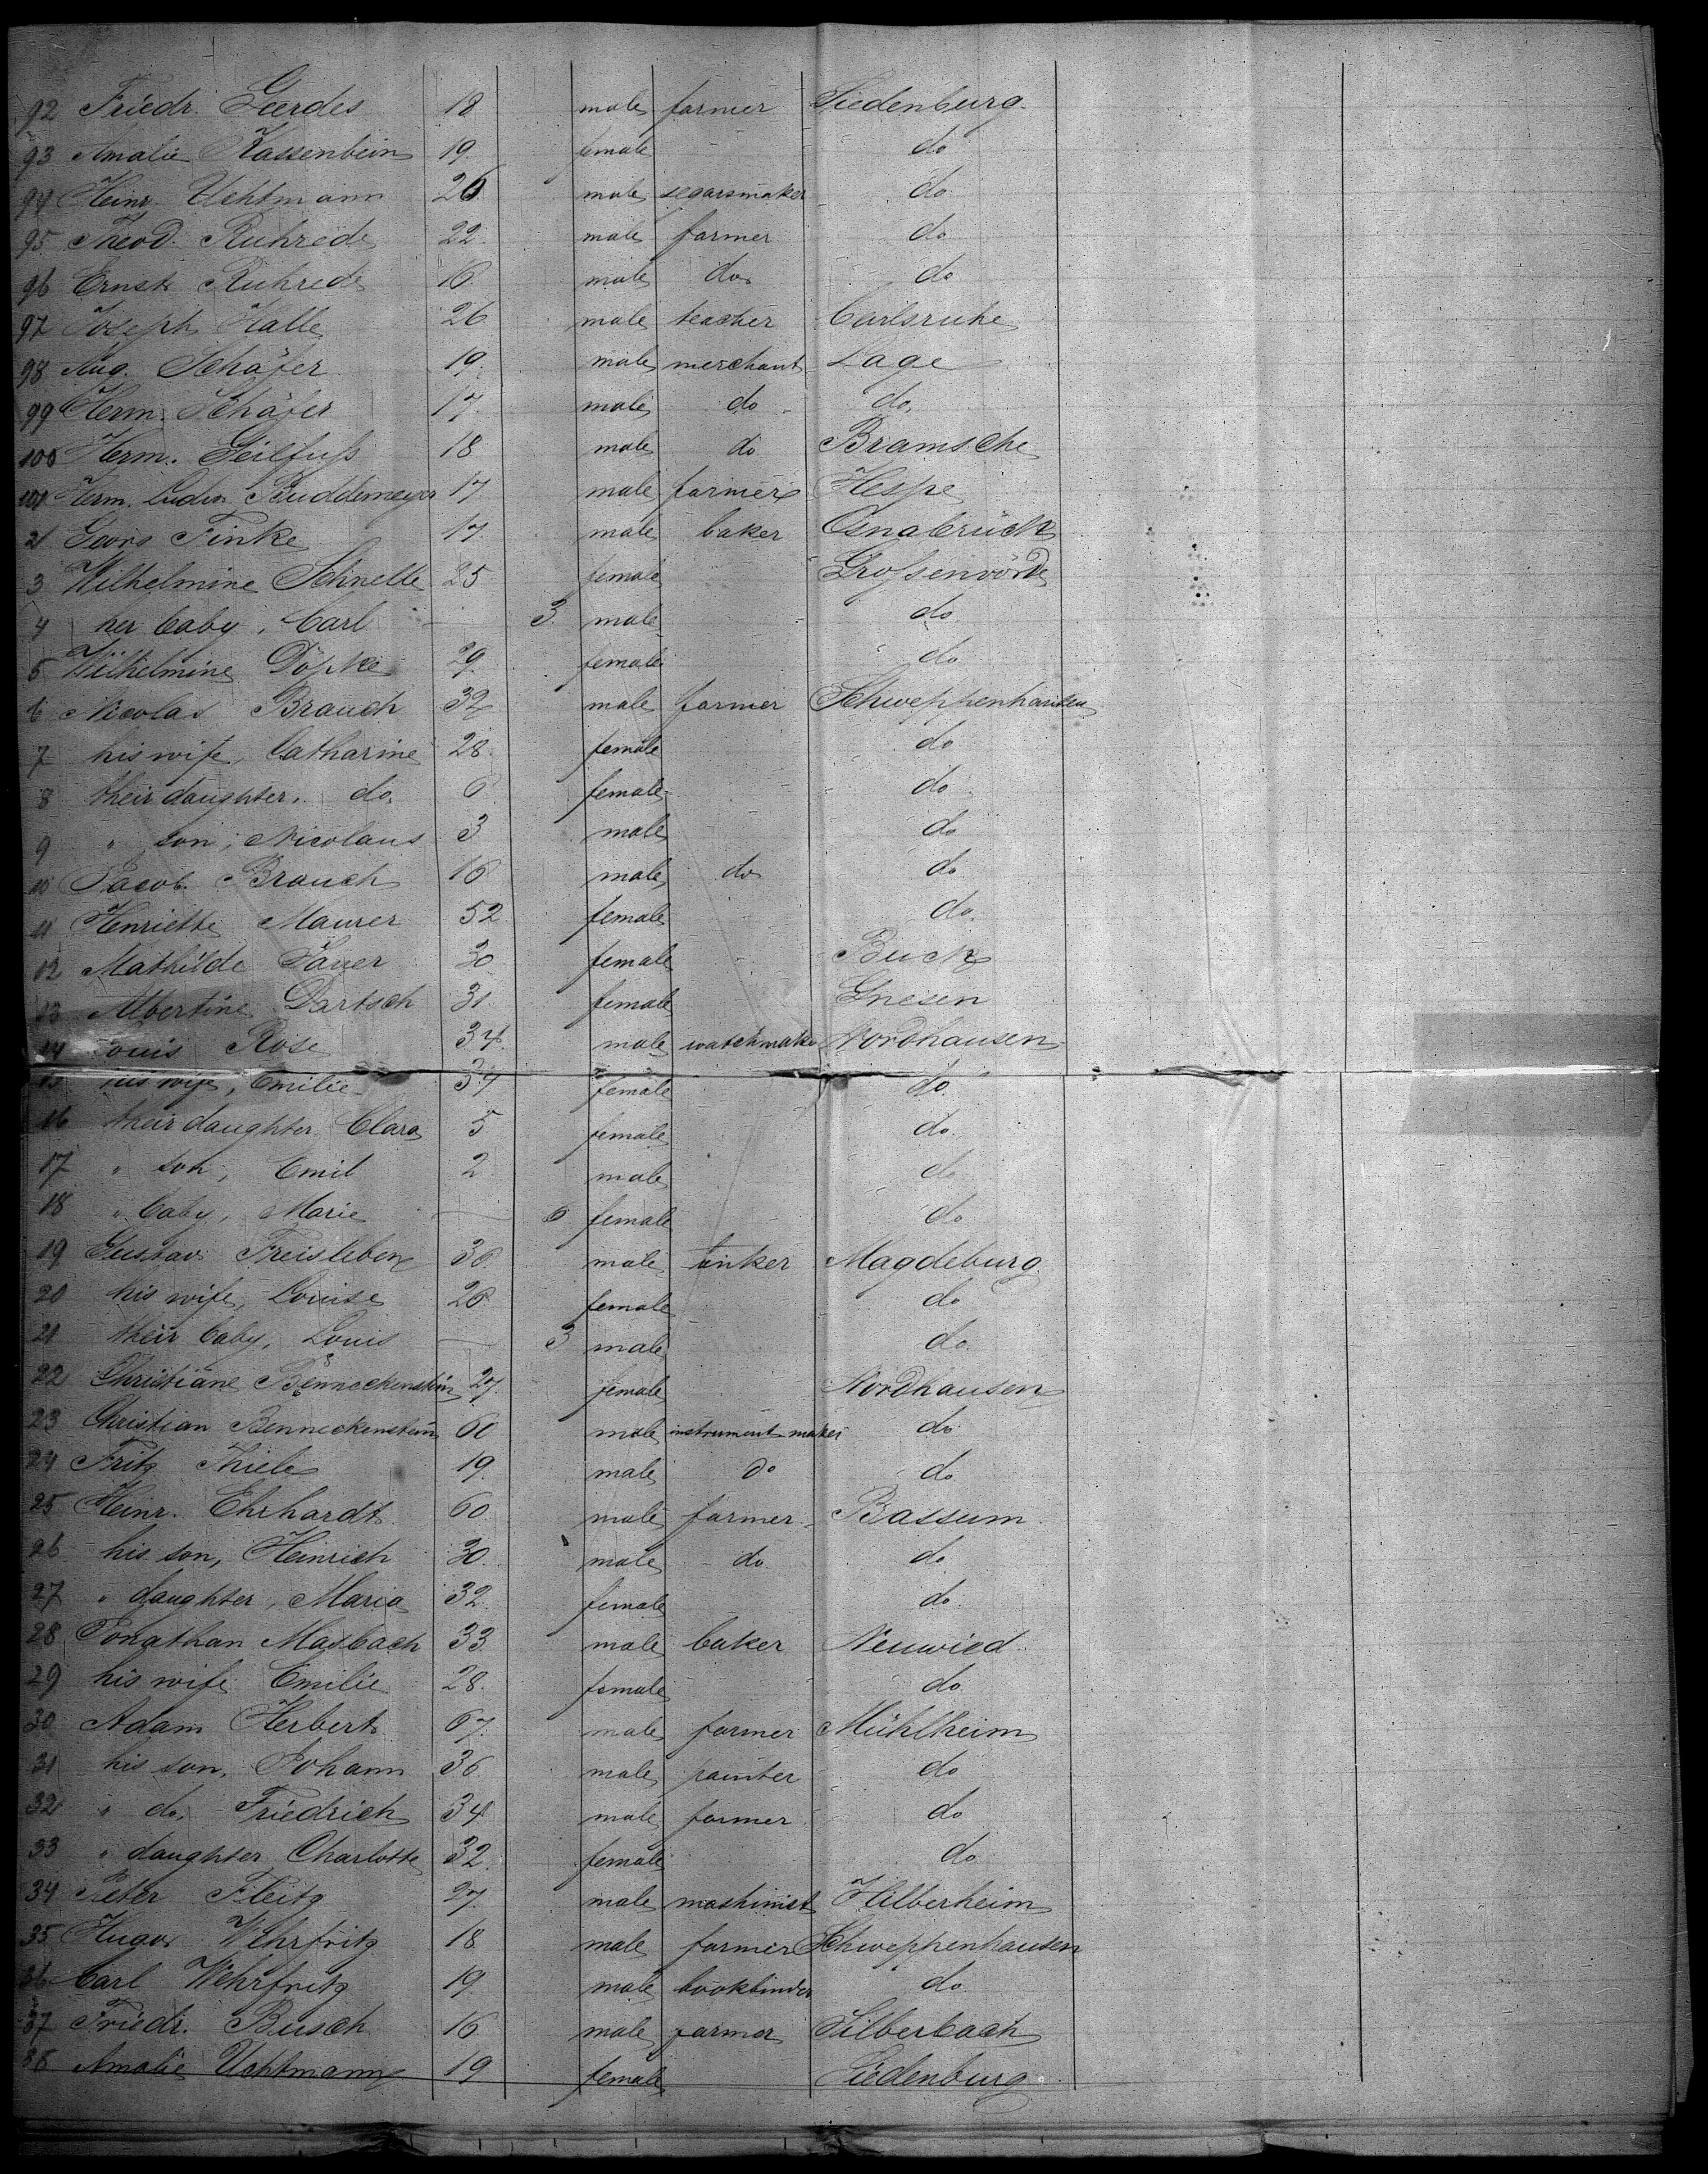 92 Friedr. Geerdes 18 male farmer Siedenburg
93 Amalie Kassenbein 19 female do
94 Heinr. Uchtmann 26 male segarsmaker do
95 Theod. Ruhrede 22 male farmer do
96 Ernst Ruhrede 16 male do do
97 Joseph Halle 26 male teacher Carlsruhe
98 Aug. Schäfer 19 male merchant Lage
99 Herm. Schäfer 17 male do do
100 Herm. Geilfuß 18 male do Bramsche
101 Herm. Ludw. Buddemeyer 17 male farmer Hespe
2 Georg Finke 17 male baker Osnabrück
3 Wilhelmine Schnelle 25 female Großenvörde
4 her baby, Carl — 3 male do
5 Wilhelmine Döpke 29 female do
6 Nicolas Brauch 32 male farmer Schweppenhausen
7 his wife, Catharine 28 female do
8 their daughter, do 6 female do
9 " son, Nicolaus 3 male do
10 Jacob Brauch 16 male do do
11 Henriette Maurer 52 female do
12 Mathilde Sauer 30 female Buck
13 Albertine Dartsch 31 female Gnesen
14 Louis Rose 34 male watchmaker Nordhausen
15 his wife, Emilie 34 female do
16 their daughter Clara 5 female do
17 " son, Emil 2 male do
18 " baby, Marie — 6 female do
19 Gustav Freisleben 30 male tinker Magdeburg
20 his wife, Louise 26 female do
21 their baby, Louis — 3 male do
22 Christiane Benneckenstein 27 female Nordhausen
23 Christian Benneckenstein 60 male instrument maker do
24 Fritz Thiele 19 male do do
25 Heinr. Ehrhardt 60 male farmer Bassum
26 his son, Heinrich 30 male do do
27 " daughter, Maria 32 female do
28 Jonathan Masbach 33 male baker Neuwied
29 his wife Emilie 28 female do
30 Adam Herbert 67 male farmer Mühlheim
31 his son, Johann 36 male painter do
32 " do, Friedrich 34 male farmer do
33 " daughter Charlotte 32 female do
34 Peter Fleitz 27 male mashinist Hilberheim
35 Hugo Wehrfritz 18 male farmer Schweppenhausen
36 Carl Wehrfritz 19 male bookbinder do
37 Friedr. Busch 16 male farmer Silberbach
38 Amalie Uchtmann 19 female Siedenburg